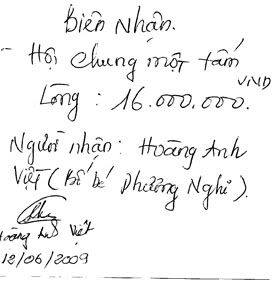 Biên Nhận.
- Hội chung một tấm
Lòng : 16.000.000. VND
Người nhận : Hoàng Anh
Việt (Bố bé Phương Nghi).
Hoàng Anh Việt
12/06/2009